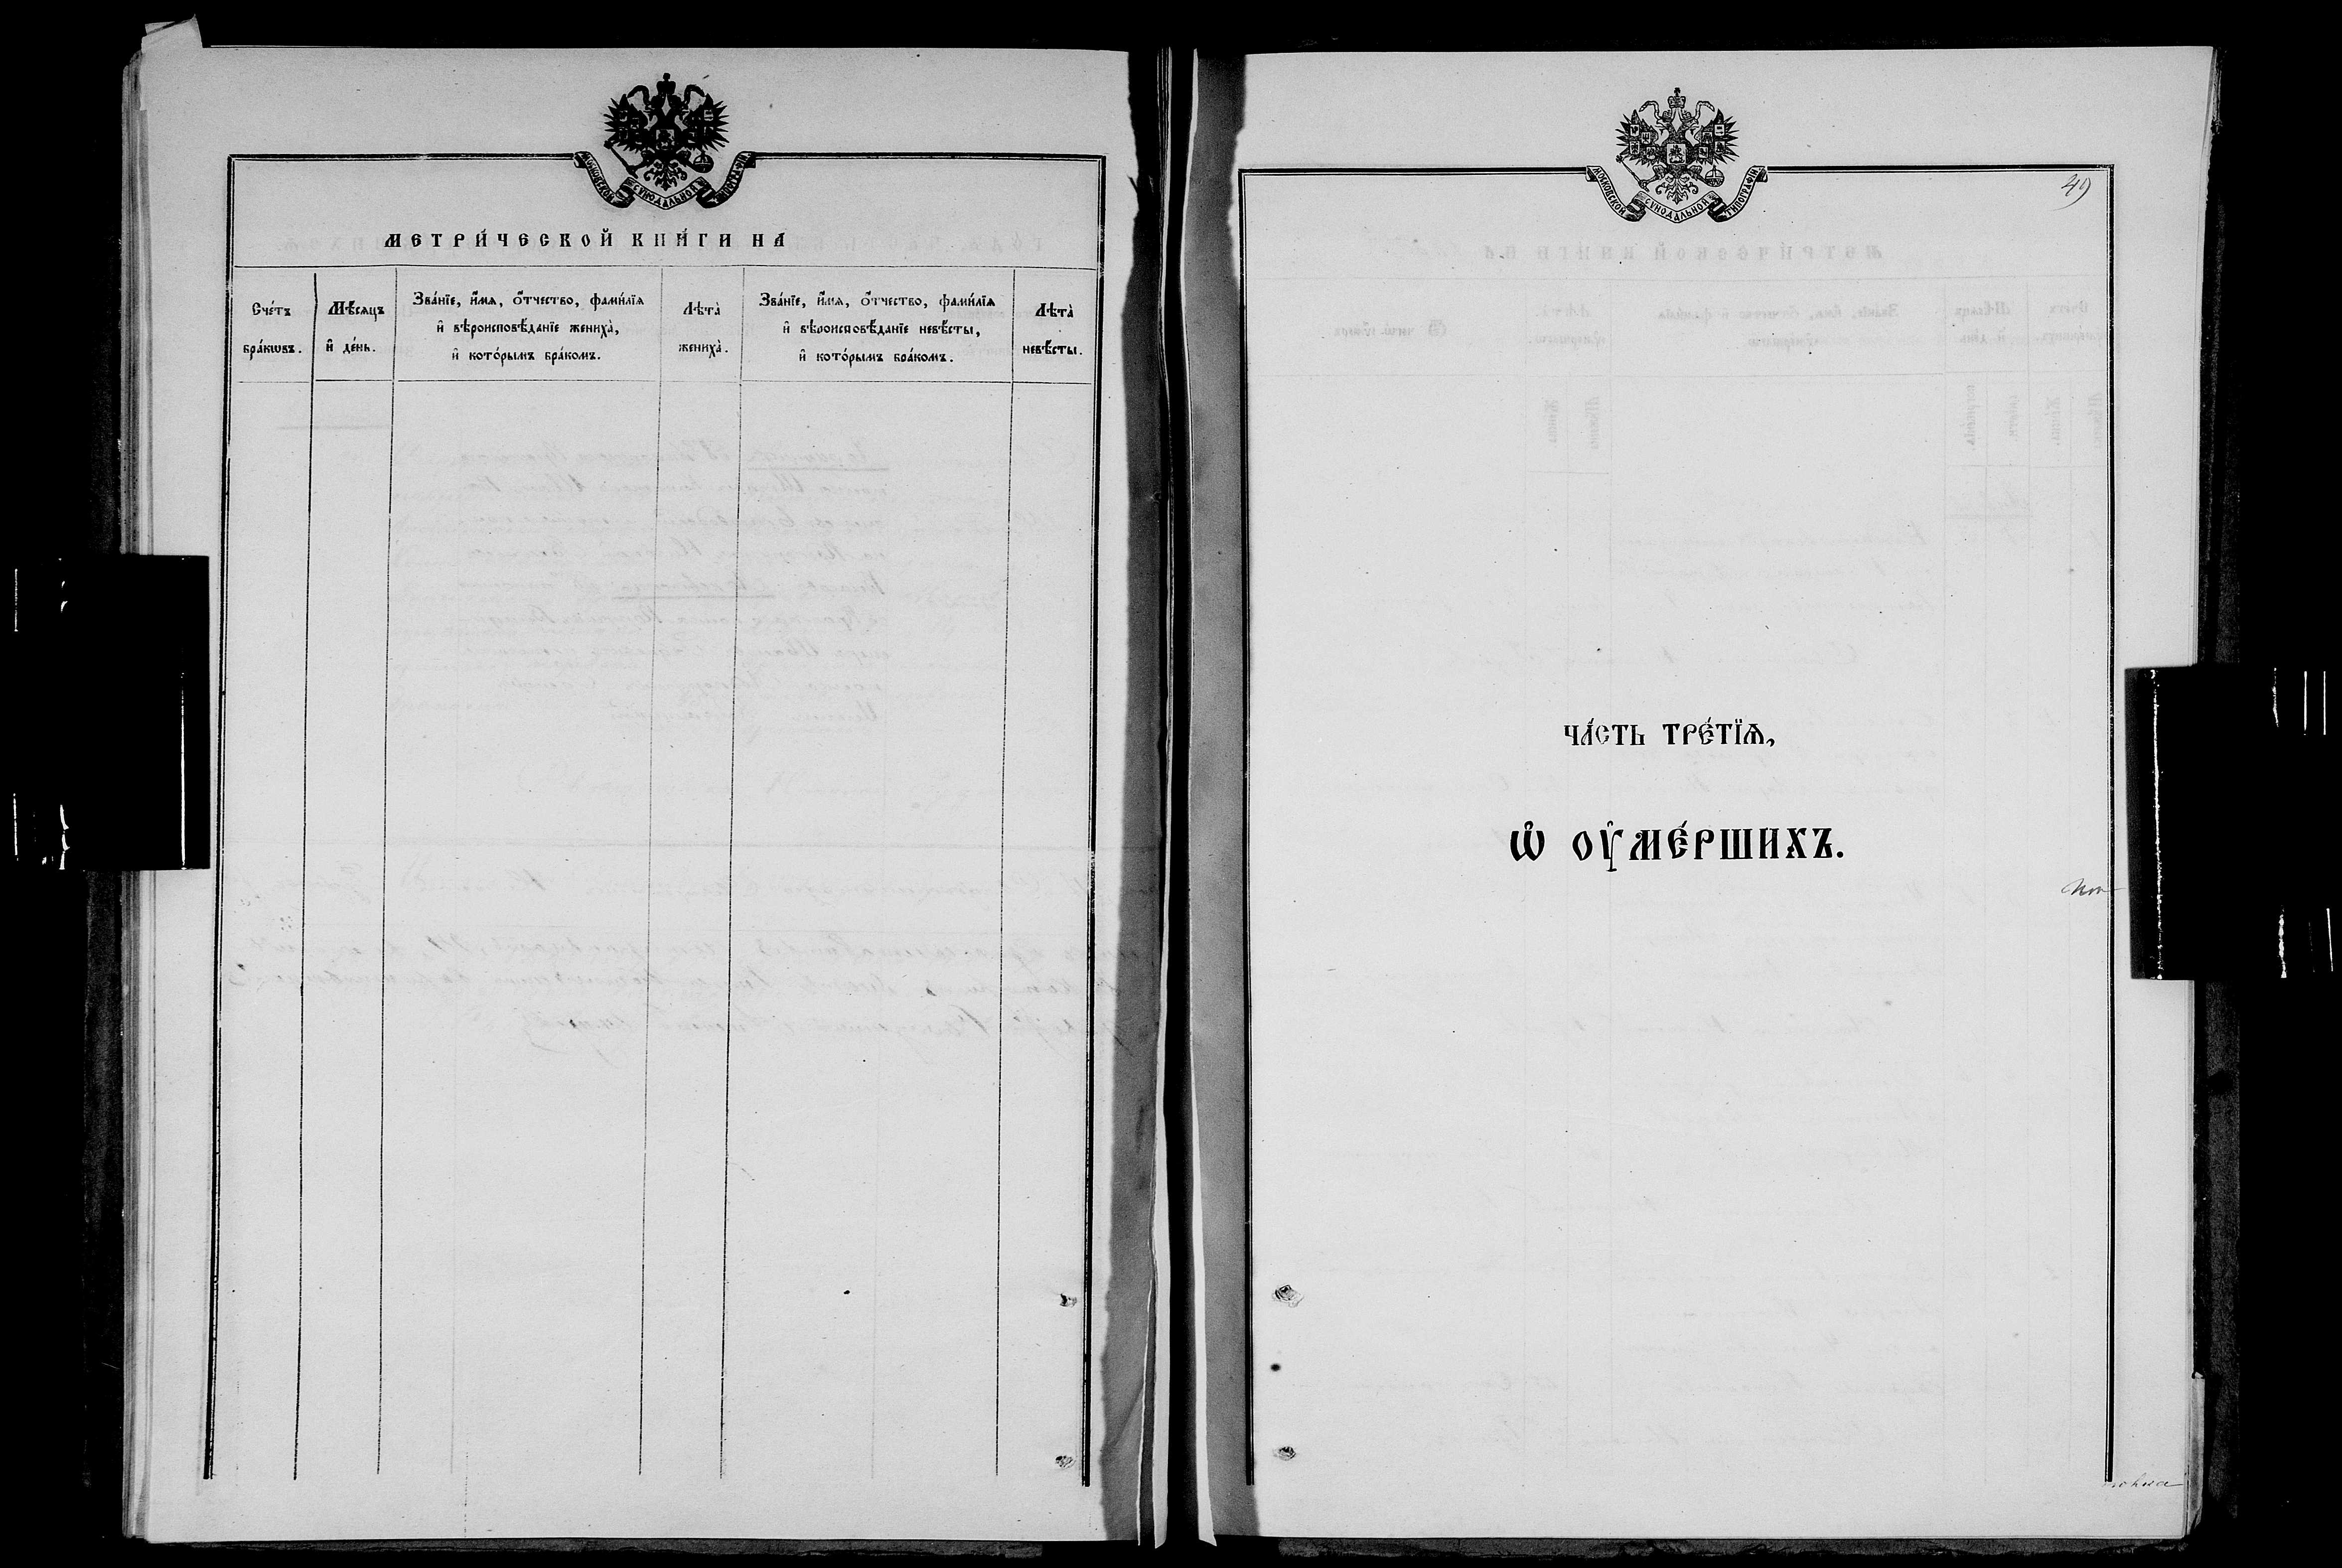 МОСКОВСКОЙ СѴНОДАЛЬНОЙ ТИПОГРАФІИ
МЕТРИ́ЧЕСКОЙ КНИ́ГИ НА
Сче́тъ
бра́кѡвъ.
Мѣ́сяцъ
и҆ де́нь.
Зва́нїе, и҆́мя, о҆́тчество, фами́лїя
и҆ вѣроисповѣ́данїе жениха̀,
и҆ кото́рымъ бра́комъ.
Лѣта̀
жениха̀.
Зва́нїе, и҆́мя, о҆́тчество, фами́лїя
и҆ вѣроисповѣ́данїе невѣ́сты,
и҆ кото́рымъ бра́комъ.
Лѣта̀
невѣ́сты.
МОСКОВСКОЙ СѴНОДАЛЬНОЙ ТИПОГРАФІИ
49
ЧА́СТЬ ТРЕ́ТЇѦ,
Ѡ҆ ОУ҆МЕ́РШИХЪ.